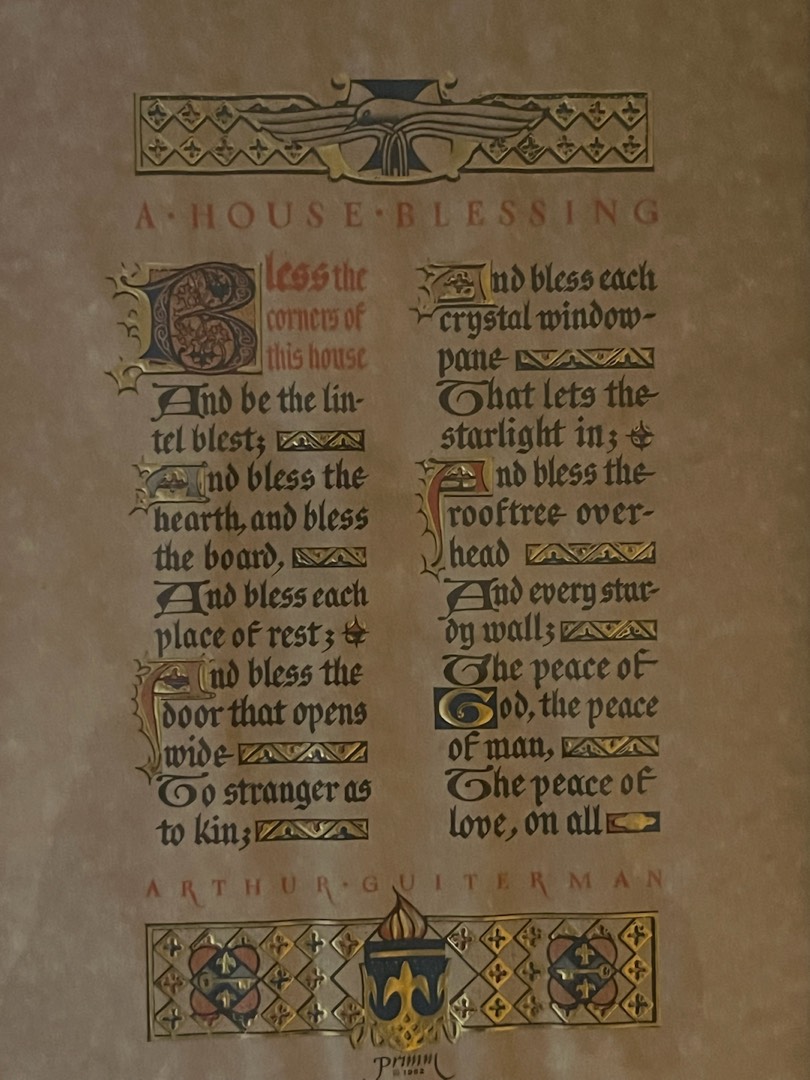 A·HOUSE·BLESSING
Bless the
corners of
this house
And be the lin-
tel blest;
And bless the
hearth, and bless
the board,
And bless each
place of rest;
And bless the
door that opens
wide
To stranger as
to kin;
And bless each
crystal window-
pane
That lets the
starlight in;
And bless the
rooftree over-
head
And every stur-
dy wall;
The peace of
God, the peace
of man,
The peace of
love, on all
ARTHUR·GUITERMAN
Primm